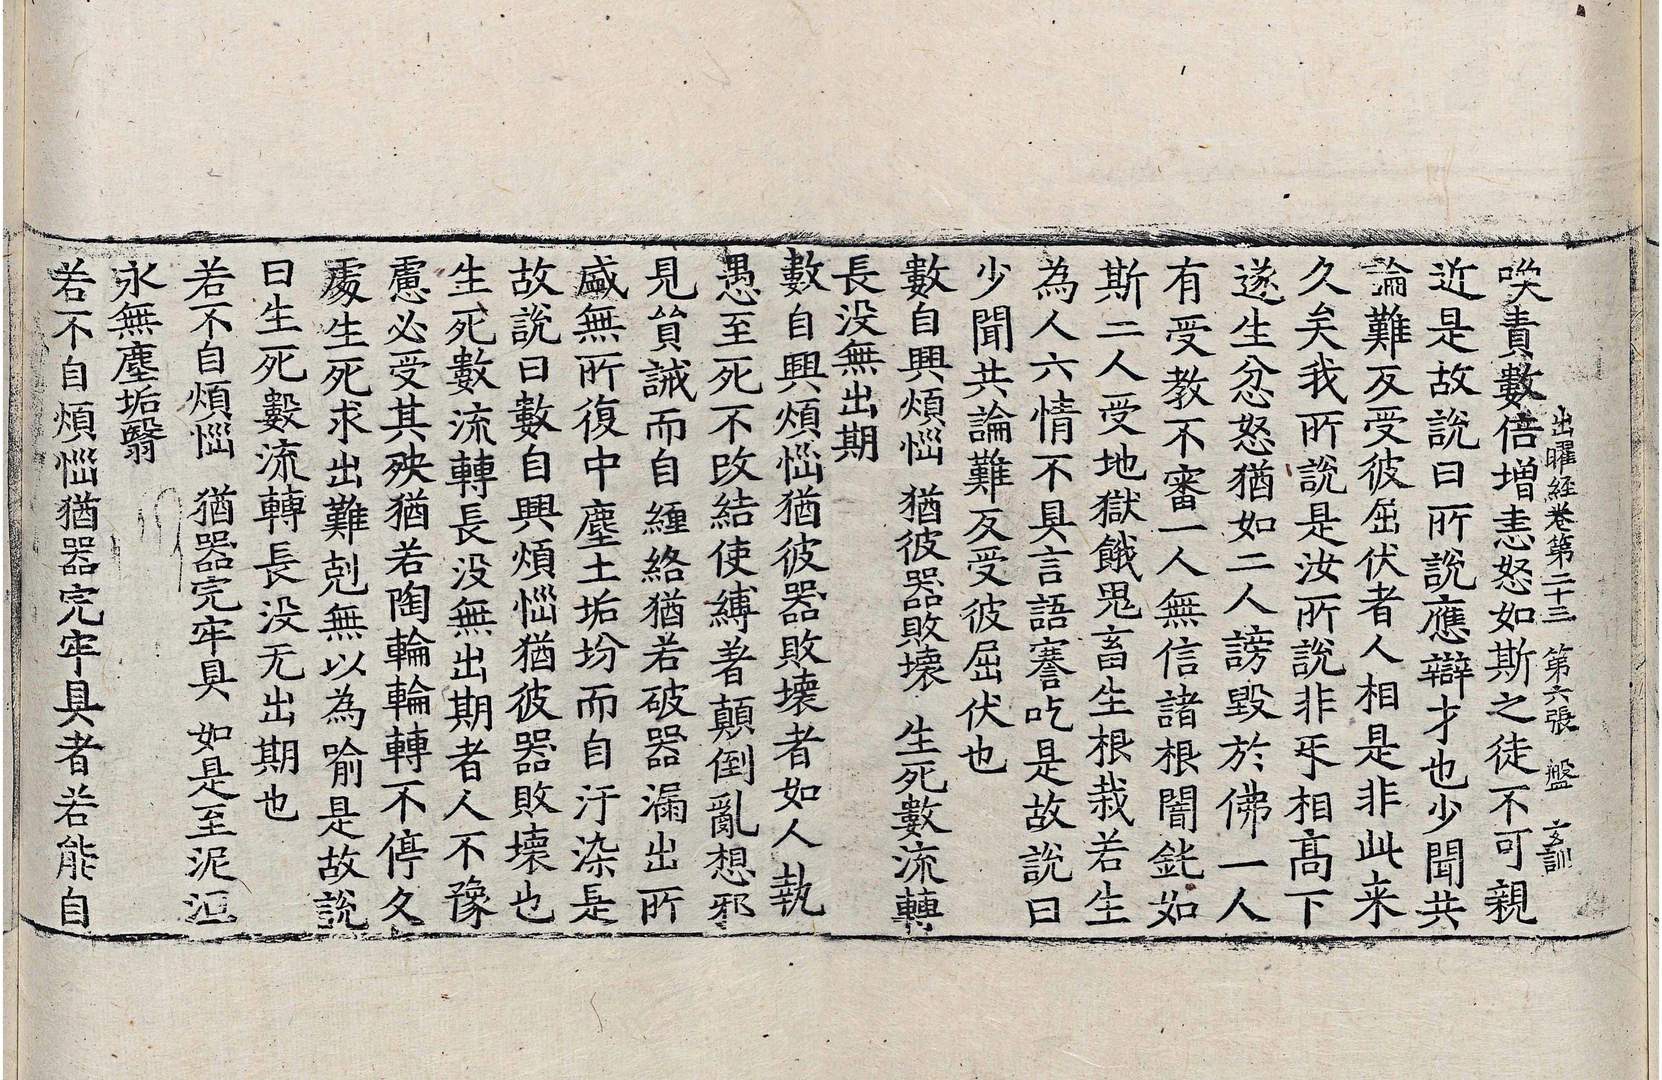 出曜経卷第二十三　第六張　盤　玄訓
喚責數倍增恚怒如斯之徒不可親
近是故說曰所說應辯才也少聞共
論難反受彼屈伏者人相是非此来
久矣我所說是汝所說非手相高下
遂生忿怒猶如二人謗毀於佛一人
有受教不審一人無信諸根闇鈍如
斯二人受地獄餓鬼畜生根栽若生
為人六情不具言語謇吃是故說曰
少聞共論難反受彼屈伏也
數自興煩惱　猶彼器敗壞　生死數流轉
長没無出期
數自興煩惱猶彼器敗壞者如人執
愚至死不改結使縛著顛倒亂想邪
見貿誡而自纏絡猶若破器漏出所
盛無所復中塵土垢坋而自汙染是
故說曰數自興煩惱猶彼器敗壞也
生死數流轉長没無出期者人不豫
慮必受其殃猶若陶輪輪轉不停久
處生死求出難剋無以為喻是故說
曰生死數流轉長没无出期也
若不自煩惱　猶器完牢具　如是至泥洹
永無塵垢翳
若不自煩惱猶器完牢具者若能自